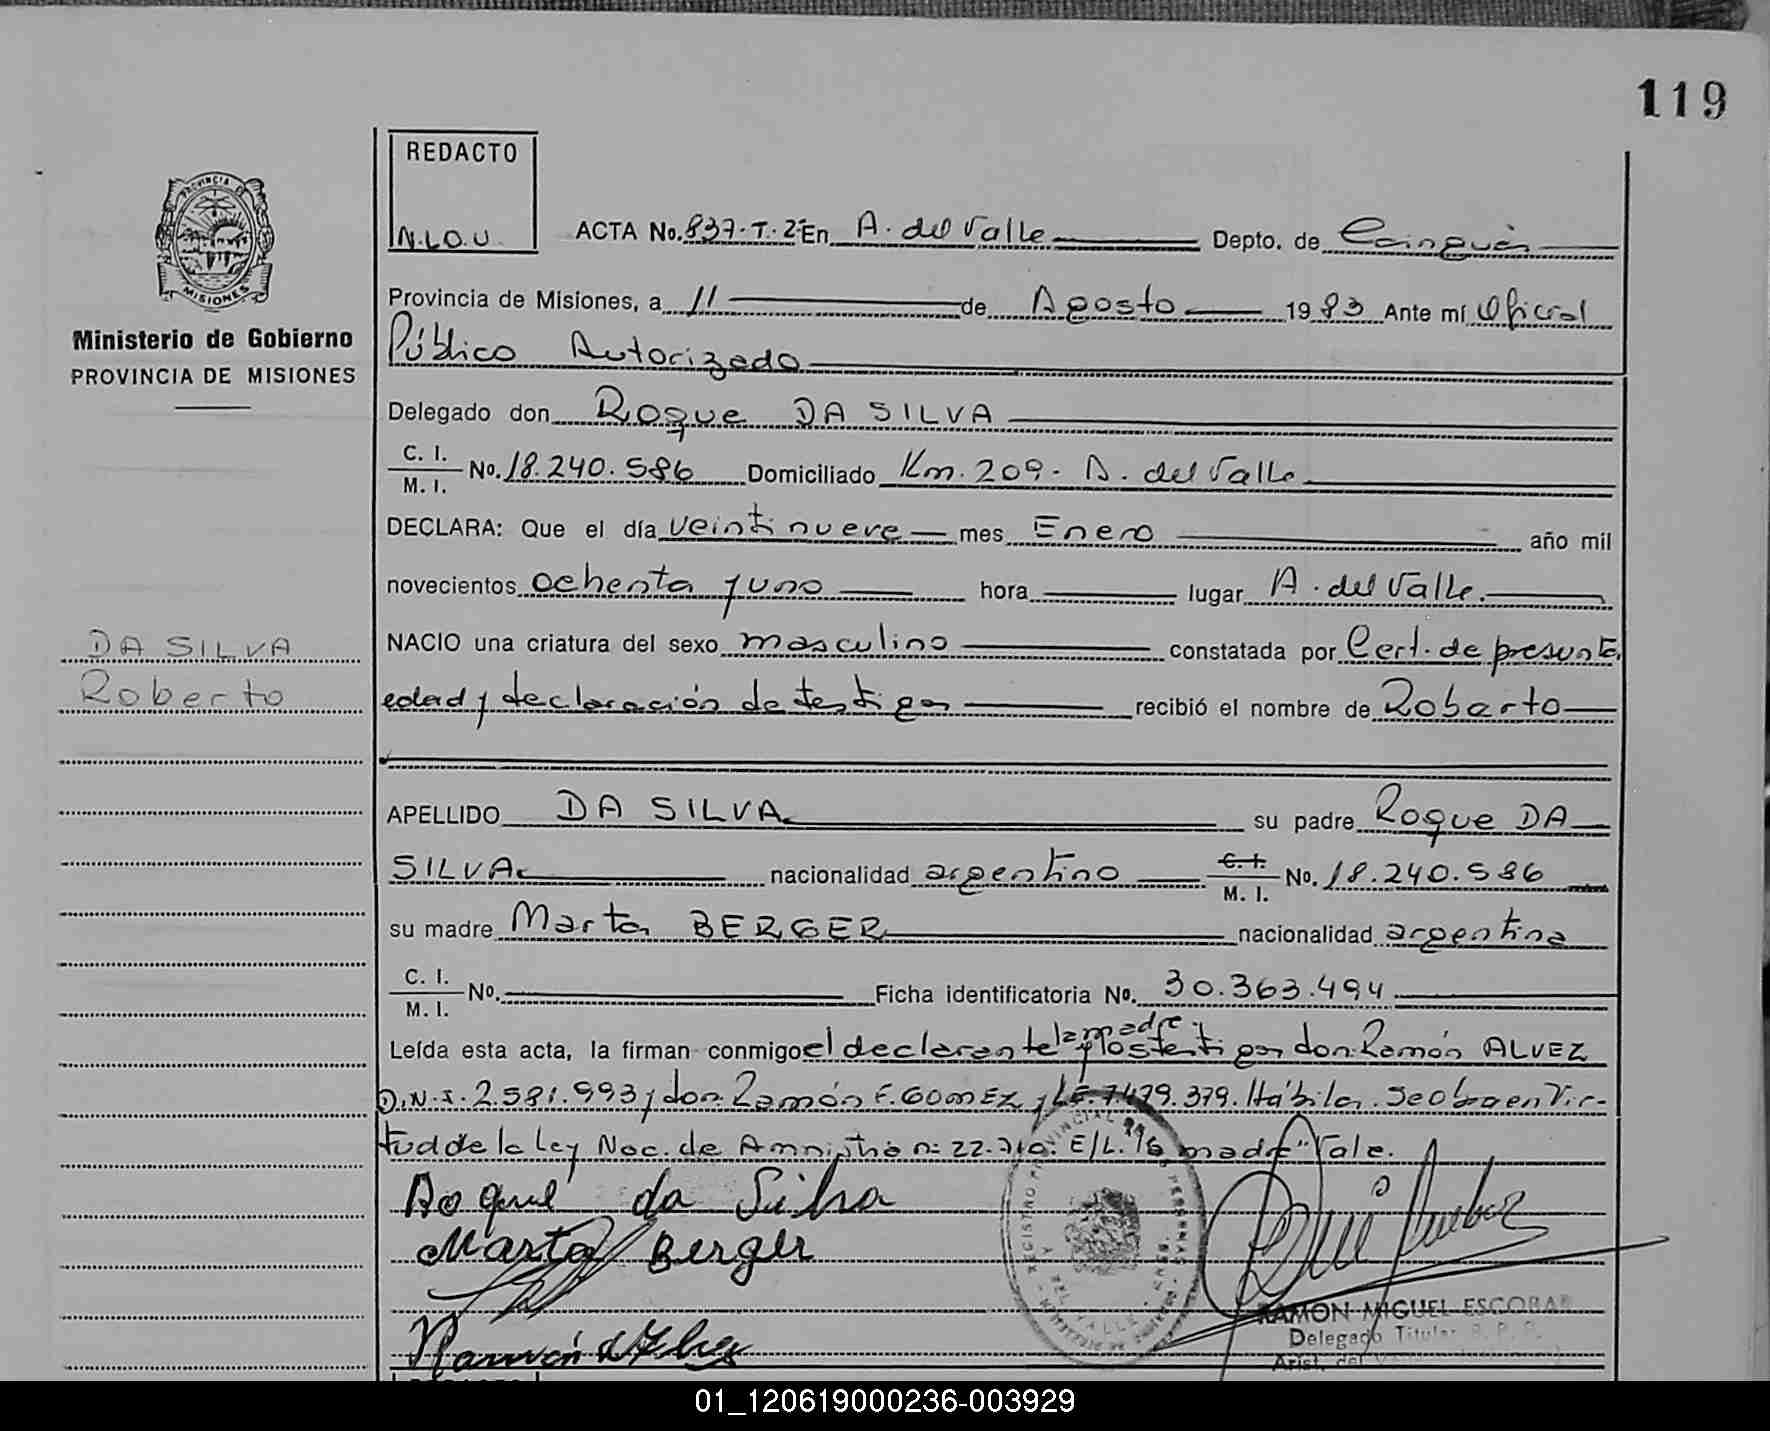 119
REDACTO
N.L.O.U.
PROVINCIA DE
MISIONES
Ministerio de Gobierno
PROVINCIA DE MISIONES
DA SILVA
Roberto
ACTA No. 837-T-2º En A. del Valle Depto. de Cainguás
Provincia de Misiones, a 11 de Agosto 1983 Ante mí Oficial
Público Autorizado
Delegado don Roque DA SILVA
C. I. M. I. No. 18.240.586 Domiciliado Km. 209 - A. del Valle
DECLARA: Que el día veintinueve mes Enero año mil
novecientos ochenta y uno hora lugar A. del Valle.
NACIO una criatura del sexo masculino constatada por Cert. de presunta
edad y declaración de testigos recibió el nombre de Roberto
APELLIDO DA SILVA su padre Roque DA
SILVA nacionalidad argentino C. I. M. I. No. 18.240.586
su madre Marta BERGER nacionalidad argentina
C. I. M. I. No. Ficha identificatoria No. 30.363.494
la madre
Leída esta acta, la firman conmigo el declarante y los testigos don Ramón ALVEZ
D.N.I. 2.581.993 y don Ramón F. GOMEZ, LE. 7.479.379. Hábiles. Se obra en Vir-
tud de la Ley Nac. de Amnistía nº 22.710. E/L. "la madre" Vale.
Roque da Silva
Marta Berger
Ramón Alvez
RAMON MIGUEL ESCOBAR
Delegado Titular R. P. P.
Arist. del Valle
01_120619000236-003929